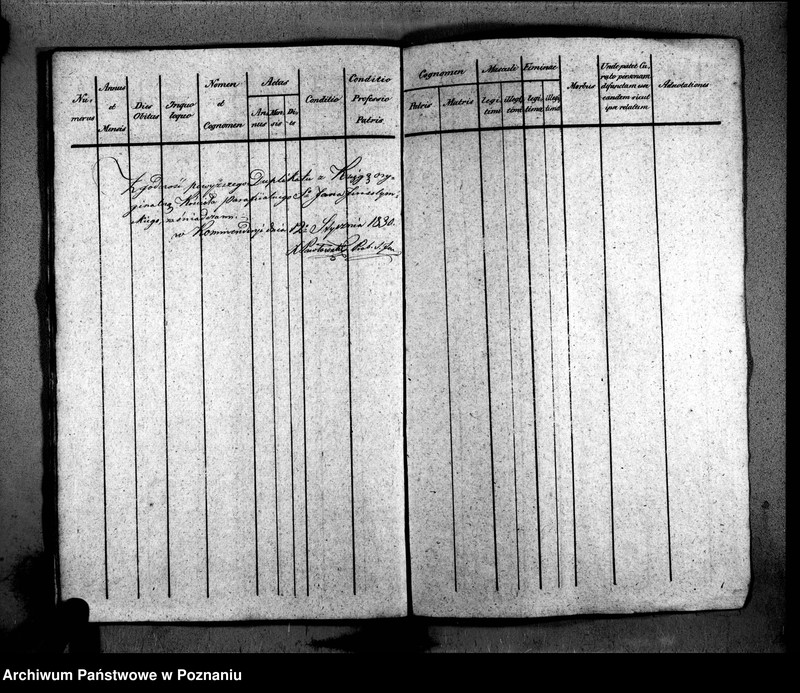 Nu-
merus
Annus
et
Mensis
Dies
Obitus
In quo
loquo
Nomen
et
Cognomen
Aetas
An-
nus
Men-
sis
Di-
es
Conditio
Conditio
Professio
Patris
Cognomen
Patris
Matris
Masculi
legi-
timi
illegi-
timi
Fiminae
legi-
timae
illegi-
timae
Morbus
Unde patet Cu-
rato personam
defunctam un-
eandem sicut
ipse relatum
Adnotationes
Zgodność powyższego Duplikatu z Księgą ory-
ginalną Kościoła parafialnego St Jana
skiego, zaświadczam.
w Kommenderyi dnia 12. Stycznia 1830.
Archiwum Państwowe w Poznaniu